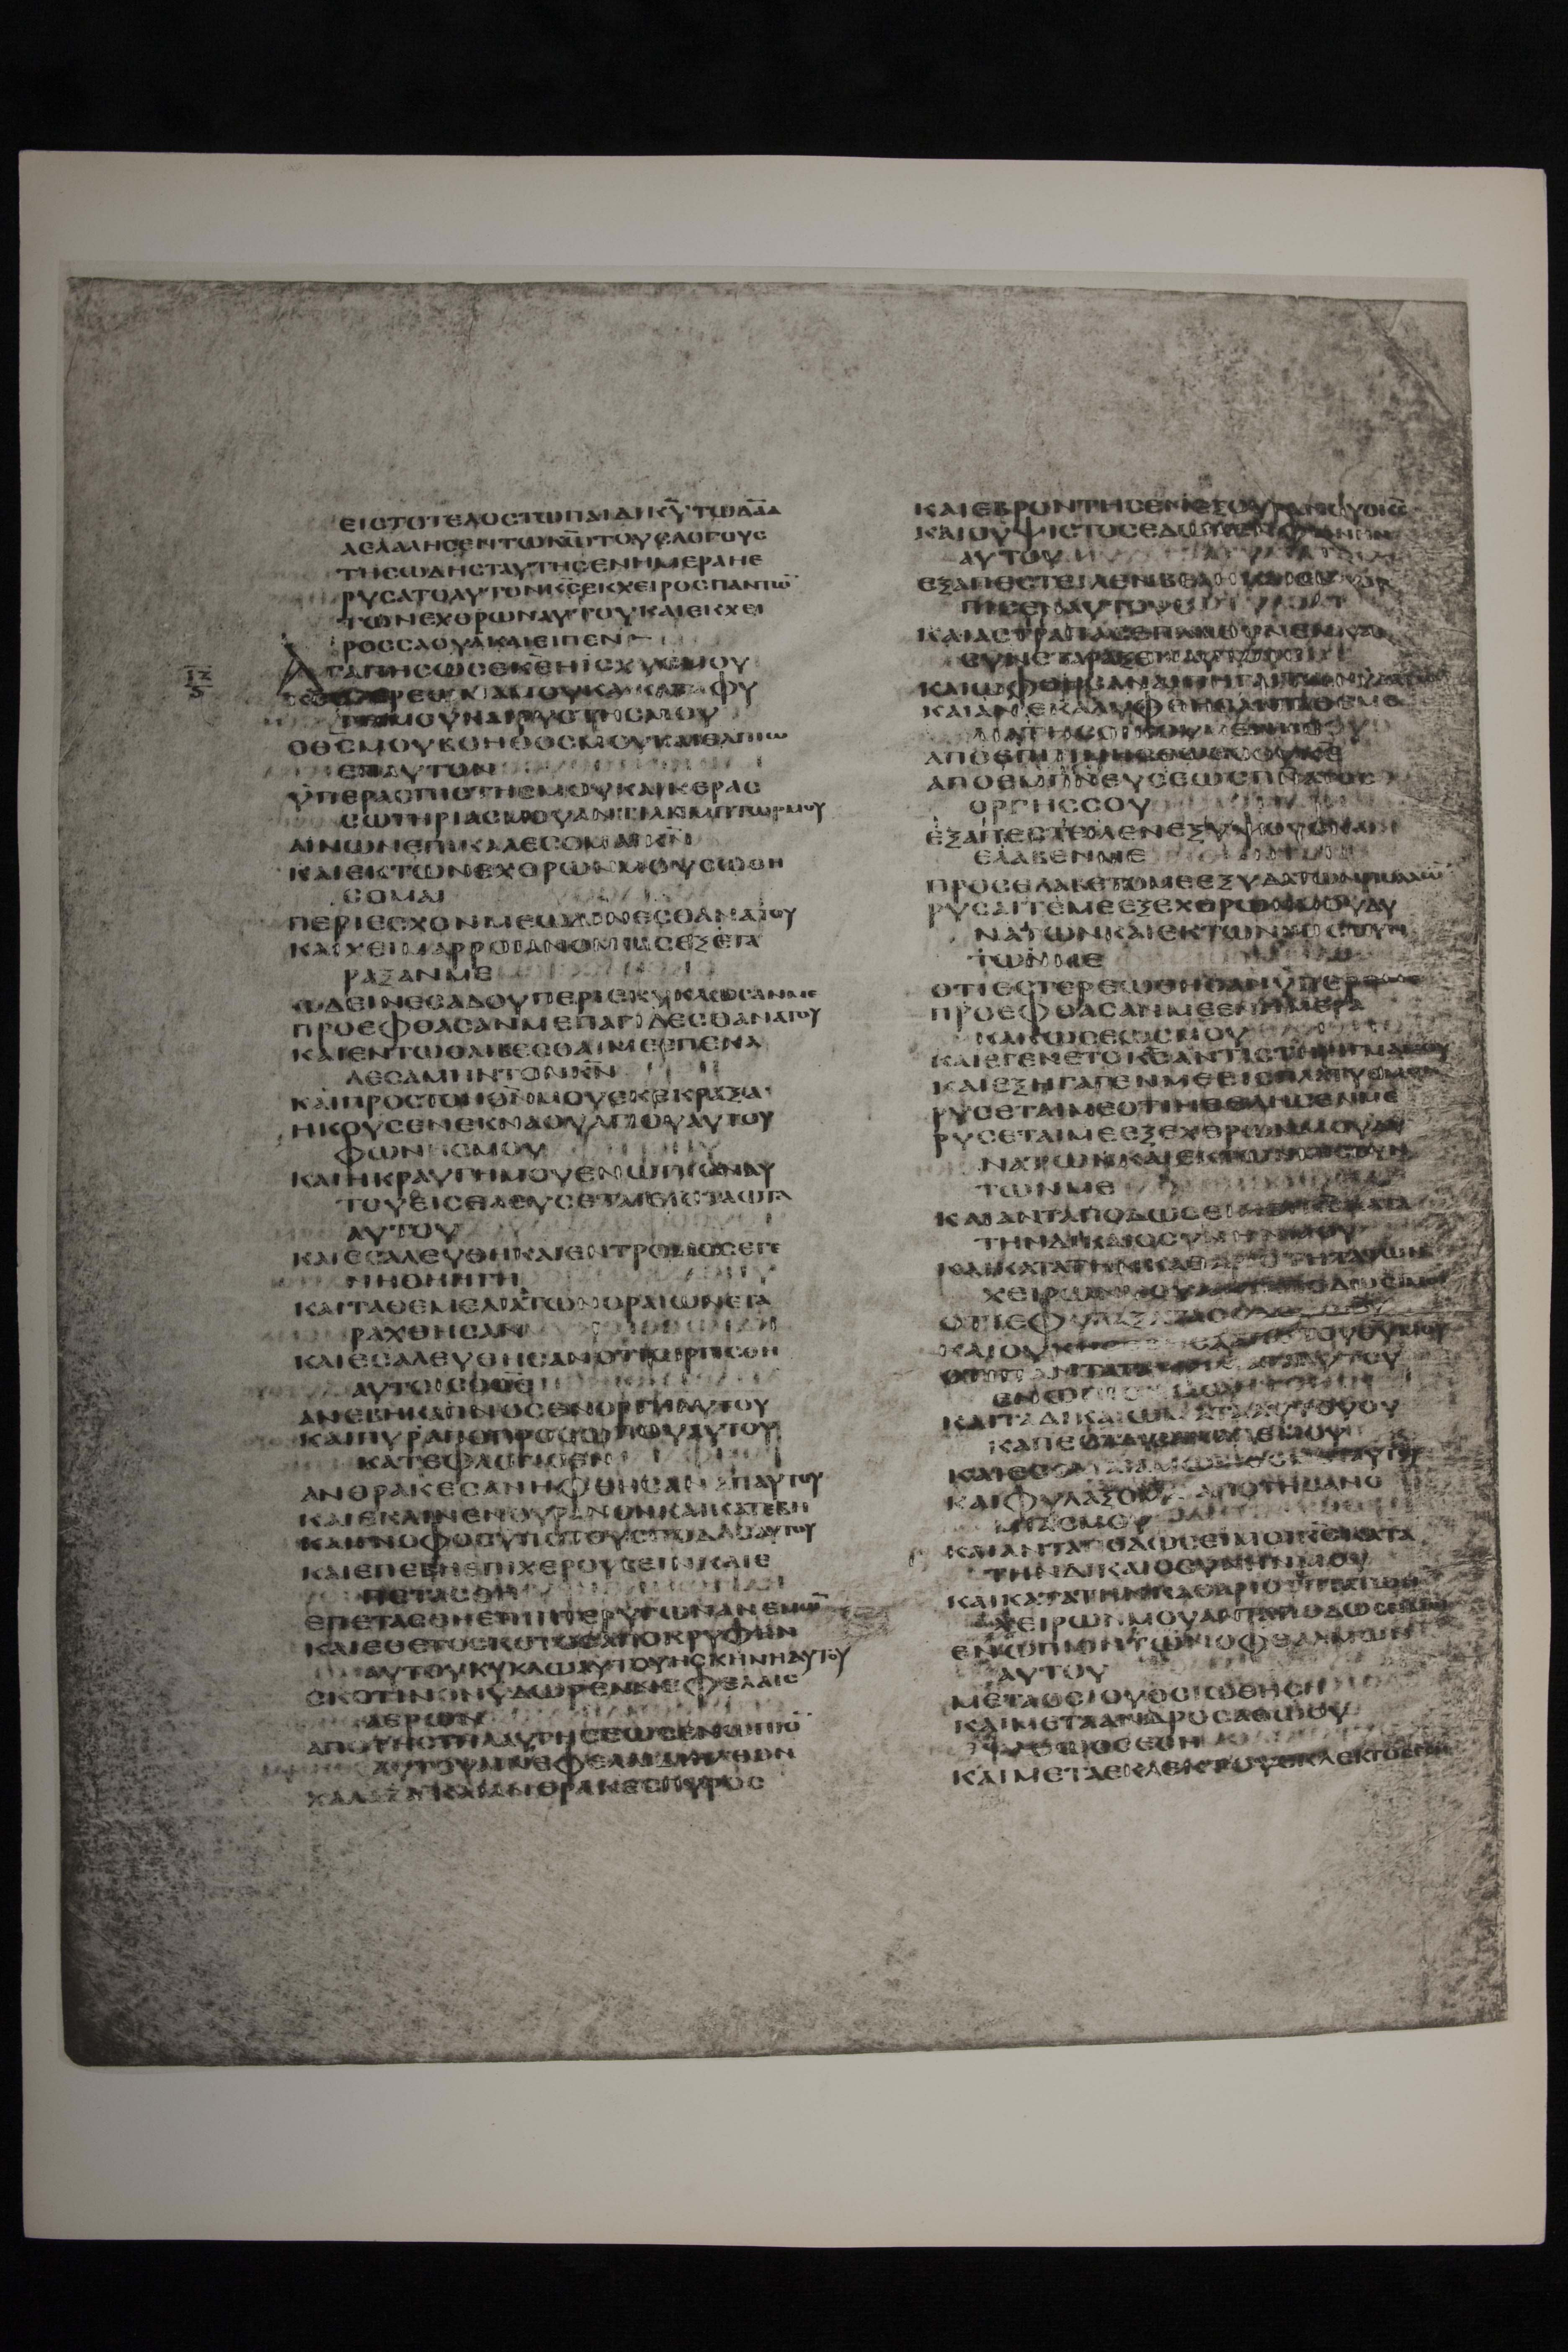 ΕΙΣΤΟΤΕΛΟΣΤΩΠΑΙΔΙΚΥΤΩΔΑΔ
ΑΕΛΑΛΗΣΕΝΤΩΚΩΤΟΥΣΛΟΓΟΥΣ
ΤΗΣΩΔΗΣΤΑΥΤΗΣΕΝΗΜΕΡΑΗΕ
ΡΥΣΑΤΟΑΥΤΟΝΚΣΕΚΧΕΙΡΟΣΠΑΝΤΩ
ΤΩΝΕΧΘΡΩΝΑΥΤΟΥΚΑΙΕΚΧΕΙ
ΡΟΣΣΑΟΥΛΚΑΙΕΙΠΕΝ
ΙΖ
ΑΓΑΠΗΣΩΣΕΚΕΗΙΣΧΥΣΜΟΥ
ΚΑΤΑΦΥ
ΓΗΜΟΥΚΑΙΡΥΣΤΗΣΜΟΥ
ΟΘΣΜΟΥΒΟΗΘΟΣΜΟΥΚΑΙΕΛΠΙΩ
ΕΠΑΥΤΟΝ
ΥΠΕΡΑΣΠΙΣΤΗΣΜΟΥΚΑΙΚΕΡΑΣ
ΣΩΤΗΡΙΑΣΜΟΥΑΝΤΙΛΗΜΠΤΩΡΜΟΥ
ΑΙΝΩΝΕΠΙΚΑΛΕΣΟΜΑΙΚΝ
ΚΑΙΕΚΤΩΝΕΧΘΡΩΝΜΟΥΣΩΘΗ
ΣΟΜΑΙ
ΠΕΡΙΕΣΧΟΝΜΕΩΔΙΝΕΣΘΑΝΑΤΟΥ
ΚΑΙΧΕΙΜΑΡΡΟΙΑΝΟΜΙΑΣΕΞΕΤΑ
ΡΑΞΑΝΜΕ
ΩΔΕΙΝΕΣΑΔΟΥΠΕΡΙΕΚΥΚΛΩΣΑΝΜΕ
ΠΡΟΕΦΘΑΣΑΝΜΕΠΑΓΙΔΕΣΘΑΝΑΤΟΥ
ΚΑΙΕΝΤΩΘΛΙΒΕΣΘΑΙΜΕΕΠΕΚΑ
ΛΕΣΑΜΗΝΤΟΝΚΝ
ΚΑΙΠΡΟΣΤΟΝΘΝΜΟΥΕΚΕΚΡΑΞΑ
ΗΚΟΥΣΕΝΕΚΝΑΟΥΑΓΙΟΥΑΥΤΟΥ
ΦΩΝΗΣΜΟΥ
ΚΑΙΗΚΡΑΥΓΗΜΟΥΕΝΩΠΙΟΝΑΥ
ΤΟΥΕΙΣΕΛΕΥΣΕΤΑΙΕΙΣΤΑΩΤΑ
ΑΥΤΟΥ
ΚΑΙΕΣΑΛΕΥΘΗΚΑΙΕΝΤΡΟΜΟΣΕΓΕ
ΝΗΘΗΗΓΗ
ΚΑΙΤΑΘΕΜΕΛΙΑΤΩΝΟΡΑΙΩΝΕΤΑ
ΡΑΧΘΗΣΑΝ
ΚΑΙΕΣΑΛΕΥΘΗΣΑΝΟΤΙΩΡΓΙΣΘΗ
ΑΥΤΟΙΣΟΘΣ
ΑΝΕΒΗΚΑΠΝΟΣΕΝΟΡΓΗΑΥΤΟΥ
ΚΑΙΠΥΡΑΠΟΠΡΟΣΩΠΟΥΑΥΤΟΥ
ΚΑΤΕΦΛΟΓΙΣΕΝ
ΑΝΘΡΑΚΕΣΑΝΗΦΘΗΣΑΝΑΠΑΥΤΟΥ
ΚΑΙΕΚΛΙΝΕΝΟΥΡΑΝΟΝΚΑΙΚΑΤΕΒΗ
ΚΑΙΓΝΟΦΟΣΥΠΟΤΟΥΣΠΟΔΑΣΑΥΤΟΥ
ΚΑΙΕΠΕΒΗΕΠΙΧΕΡΟΥΒΕΙΝΚΑΙΕ
ΠΕΤΑΣΘΗ
ΕΠΕΤΑΣΘΗΕΠΙΠΤΕΡΥΓΩΝΑΝΕΜΩ
ΚΑΙΕΘΕΤΟΣΚΟΤΟΣΑΠΟΚΡΥΦΗΝ
ΑΥΤΟΥΚΥΚΛΩΑΥΤΟΥΗΣΚΗΝΗΑΥΤΟΥ
ΣΚΟΤΙΝΟΝΥΔΩΡΕΝΝΕΦΕΛΑΙΣ
ΑΕΡΩΝ
ΑΠΟΤΗΣΤΗΛΑΥΓΗΣΕΩΣΕΝΩΠΙΟ
ΑΥΤΟΥΑΙΝΕΦΕΛΑΙΔΙΗΛΘΟΝ
ΧΑΛΑΖΑΚΑΙΑΝΘΡΑΚΕΣΠΥΡΟΣ
ΚΑΙΕΒΡΟΝΤΗΣΕΝΕΞΟΥΡΑΝΟΥΟΚΣ
ΚΑΙΟΥΨΙΣΤΟΣΕΔΩΚΕΝΦΩΝΗΝ
ΑΥΤΟΥ
ΕΞΑΠΕΣΤΕΙΛΕΝΒΕΛΗ
ΠΙΣΕΝΑΥΤΟΥΣ
ΚΑΙΑΣΤΡΑΠΑΣΕΠΛΗΘΥΝΕΝΚΑΙ
ΣΥΝΕΤΑΡΑΞΕΝΑΥΤΟΥΣ
ΚΑΙΩΦΘΗΣΑΝΑΙΠΗΓΑΙΤΩΝΥΔΑΤΩΝ
ΚΑΙΑΝΕΚΑΛΥΦΘΗΣΑΝΤΑΘΕΜΕ
ΛΙΑΤΗΣΟΙΚΟΥΜΕΝΗΣ
ΑΠΟΕΠΙΤΙΜΗΣΕΩΣΣΟΥΚΕ
ΑΠΟΕΜΠΝΕΥΣΕΩΣΠΝΑΤΟΣ
ΟΡΓΗΣΣΟΥ
ΕΞΑΠΕΣΤΕΙΛΕΝΕΞΥΨΟΥΣΚΑΙ
ΕΛΑΒΕΝΜΕ
ΠΡΟΣΕΛΑΒΕΤΟΜΕΕΞΥΔΑΤΩΝΠΟΛΛΩ
ΡΥΣΑΙΤΕΜΕΕΞΕΧΘΡΩΝΜΟΥΔΥ
ΝΑΤΩΝΚΑΙΕΚΤΩΝΜΙΣΟΥΝ
ΤΩΝΜΕ
ΟΤΙΕΣΤΕΡΕΩΘΗΣΑΝΥΠΕΡΕΜΕ
ΠΡΟΕΦΘΑΣΑΝΜΕΕΝΗΜΕΡΑ
ΚΑΚΩΣΕΩΣΜΟΥ
ΚΑΙΕΓΕΝΕΤΟΚΣΑΝΤΙΣΤΗΡΙΓΜΑΜΟΥ
ΚΑΙΕΞΗΓΑΓΕΝΜΕΕΙΣΠΛΑΤΥΣΜΟΝ
ΡΥΣΕΤΑΙΜΕΟΤΙΗΘΕΛΗΣΕΝΜΕ
ΡΥΣΕΤΑΙΜΕΕΞΕΧΘΡΩΝΜΟΥΔΥ
ΝΑΤΩΝΚΑΙΕΚΤΩΝΜΙΣΟΥΝ
ΤΩΝΜΕ
ΚΑΙΑΝΤΑΠΟΔΩΣΕΙΜΟΙΚΣΚΑΤΑ
ΤΗΝΔΙΚΑΙΟΣΥΝΗΝΜΟΥ
ΚΑΙΚΑΤΑΤΗΝΚΑΘΑΡΙΟΤΗΤΑΤΩΝ
ΧΕΙΡΩΝΜΟΥΑΝΤΑΠΟΔΩΣΕΙΜΟΙ
ΟΤΙΕΦΥΛΑΞΑΤΑΣΟΔΟΥΣ
ΚΑΙΟΥΚ
ΕΝΩΠΙΟΝ
ΚΑΙΤΑΔΙΚΑΙΩΜΑΤΑΑΥΤΟΥΟΥ
ΚΑΠΕΣΤΗΣΑΝΑΠΕΜΟΥ
ΚΑΙΕΣΟΜΑΙΑΜΩΜΟΣΜΕΤΑΥΤΟΥ
ΚΑΙΦΥΛΑΞΟΜΑΙΑΠΟΤΗΣΑΝΟ
ΜΙΑΣΜΟΥ
ΚΑΙΑΝΤΑΠΟΔΩΣΕΙΜΟΙΚΣΚΑΤΑ
ΤΗΝΔΙΚΑΙΟΣΥΝΗΝΜΟΥ
ΚΑΙΚΑΤΑΤΗΝΚΑΘΑΡΙΟΤΗΤΑΤΩΝ
ΧΕΙΡΩΝΜΟΥΑΝΤΑΠΟΔΩΣΕΙΜΟΙ
ΕΝΩΠΙΟΝΤΩΝΟΦΘΑΛΜΩΝ
ΑΥΤΟΥ
ΜΕΤΑΟΣΙΟΥΟΣΙΩΘΗΣΗ
ΚΑΙΜΕΤΑΑΝΔΡΟΣΑΘΩΟΥ
ΑΘΩΟΣΕΣΗ
ΚΑΙΜΕΤΑΕΚΛΕΚΤΟΥΕΚΛΕΚΤΟΣΕΣΗ